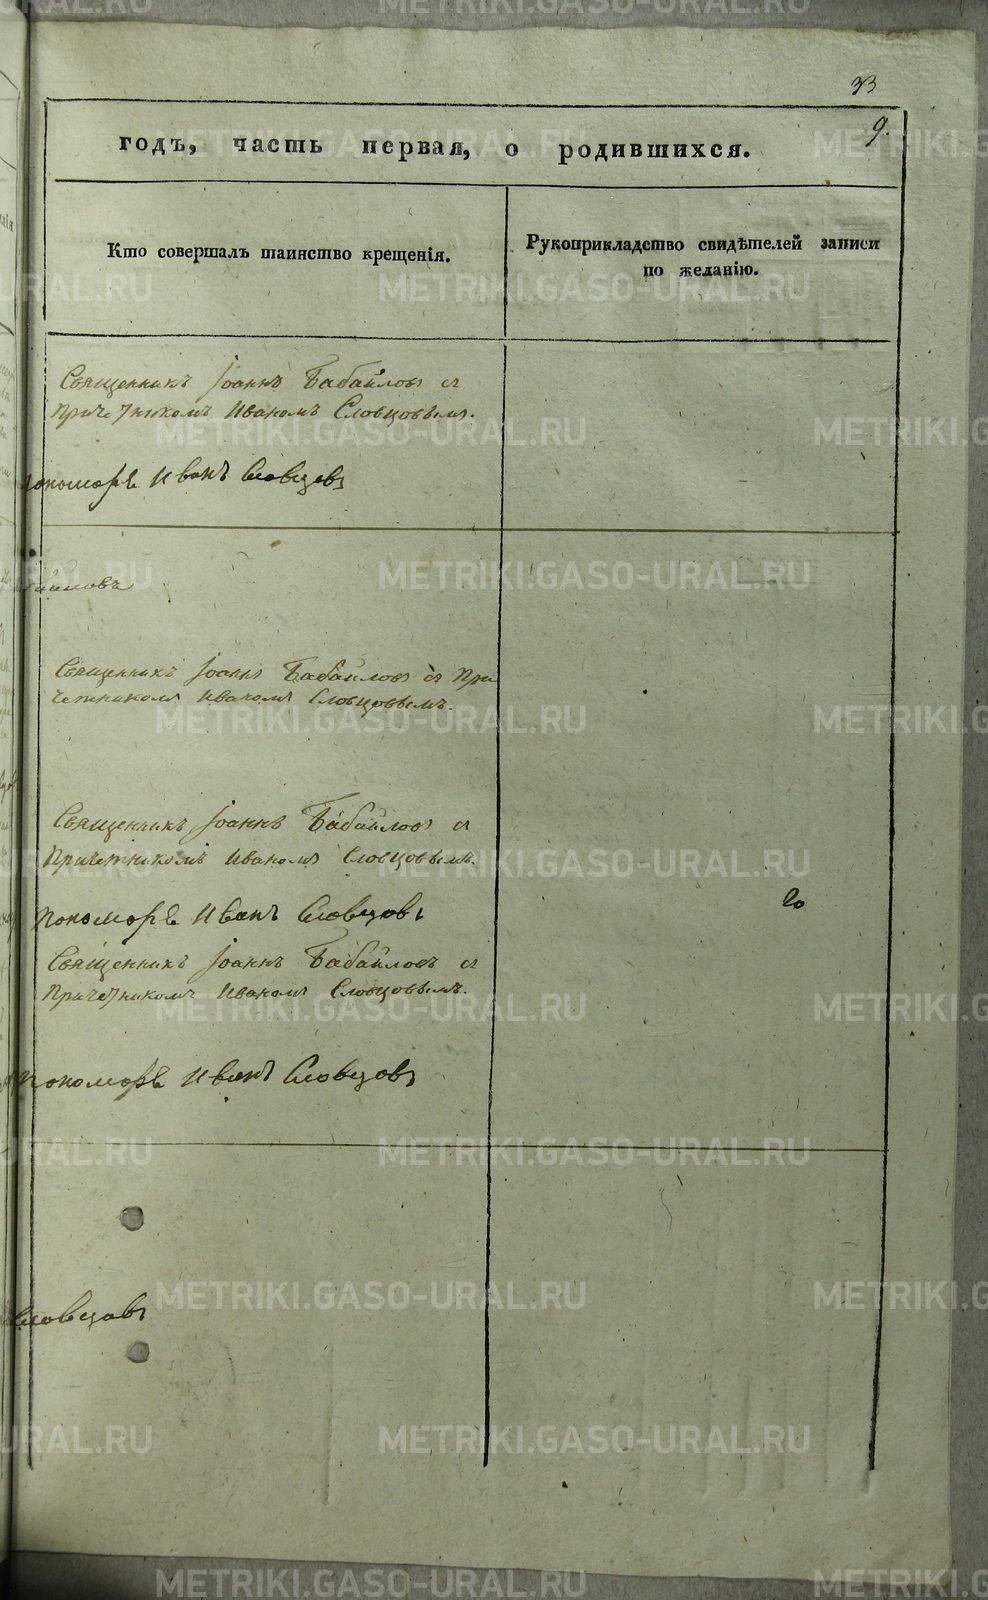 33
9.
годъ, часть первая, о родившихся.
Кто совершалъ таинство крещенія.
Рукоприкладство свидѣтелей записи
по желанію.
Священникъ Іоаннъ Бабайловъ съ
Причетникомъ Иваномъ Словцовымъ.
Пономорь Иванъ Словцовъ
байловъ
Священникъ Іоаннъ Бабайловъ съ При
четникомъ Иваномъ Словцовымъ.
Священникъ Іоаннъ Бабайловъ съ
Причетникомъ Иваномъ Словцовымъ.
Пономорь Иванъ Словцовъ
Священникъ Іоаннъ Бабайловъ съ
Причетникомъ Иваномъ Словцовымъ.
Пономорь Иванъ Словцовъ
Словцовъ
METRIKI.GASO-URAL.RU